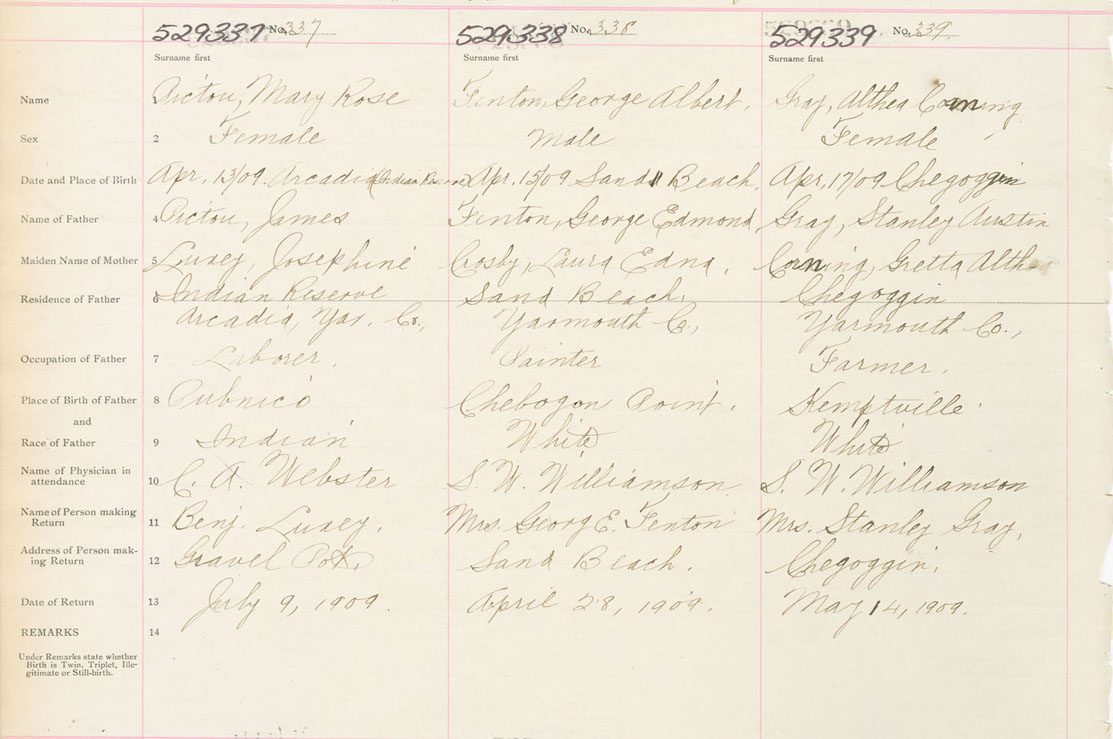 529337 No. 337 529338 No. 338 529339 No. 339
Surname first Surname first Surname first
Name 1 Pictou, Mary Rose Fenton, George Albert, Gray, Althea Corning
Sex 2 Female Male Female
Date and Place of Birth Apr. 13/09. Arcadia (Indian Reserve) Apr. 15/09 Sand Beach, Apr. 17/09 Chegoggin
Name of Father 4 Pictou, James Fenton, George Edmond, Gray, Stanley Austin
Maiden Name of Mother 5 Luxey, Josephine Crosby, Laura Edna, Corning, Gretta Althea
Residence of Father 6 Indian Reserve Sand Beach, Chegoggin
Arcadia, Yar. Co., Yarmouth Co., Yarmouth Co.,
Occupation of Father 7 Laborer. Painter Farmer.
Place of Birth of Father 8 Pubnico Chebogon Point. Kemptville
and
Race of Father 9 Indian White White
Name of Physician in
attendance 10 C. A. Webster S. W. Williamson S. W. Williamson
Name of Person making
Return 11 Benj. Luxey. Mrs. Georg E. Fenton Mrs. Stanley Gray,
Address of Person mak-
ing Return 12 Gravel Sand Beach. Chegoggin,
Date of Return 13 July 9, 1909. April 28, 1909. May 14, 1909.
REMARKS 14
Under Remarks state whether
Birth is Twin, Triplet, Ille-
gitimate or Still-birth.